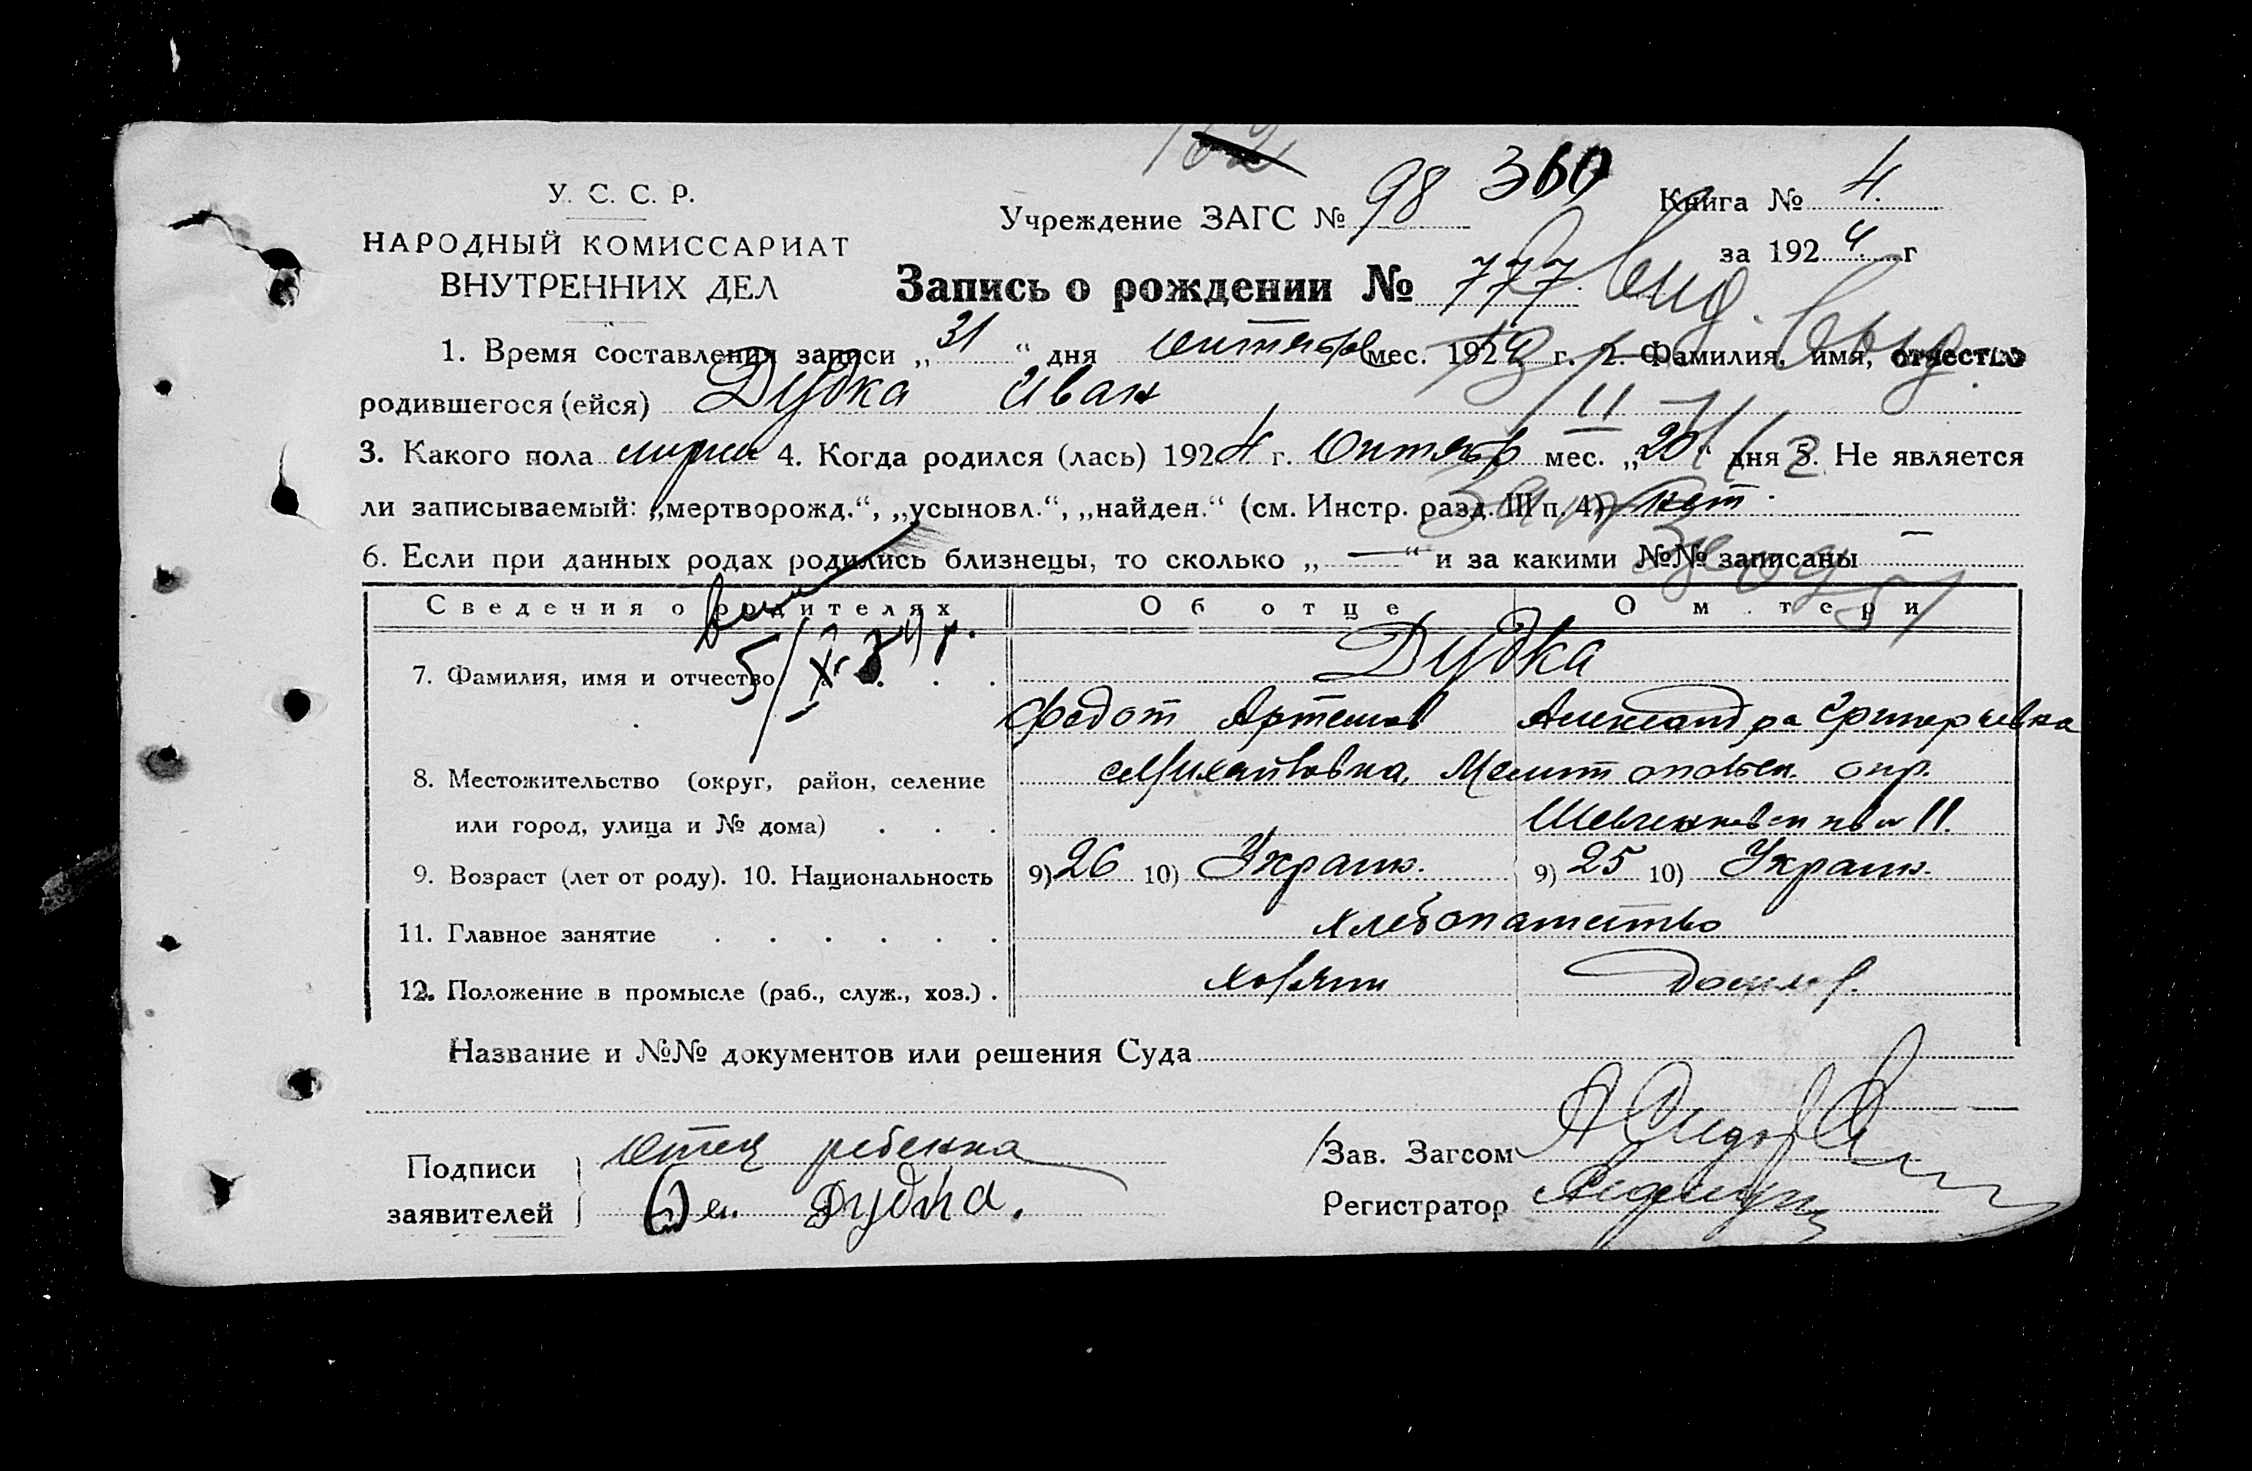 У. С. С. Р.
НАРОДНЫЙ КОМИССАРИАТ
ВНУТРЕННИХ ДЕЛ
162
Учреждение ЗАГС № 98 360
Книга № 4.
за 1924 г
Запись о рождении № 777.
1. Время составления записи „31“ дня октября мес. 1924 г. 2. Фамилия, имя, отчество
родившегося (ейся) Дудка Иван
3. Какого пола мужск 4. Когда родился (лась) 1924 г. Октябр мес. „20“ дня 5. Не является
ли записываемый: „мертворожд.“, „усыновл.“, „найден.“ (см. Инстр. разд. III п. 4) нет.
6. Если при данных родах родились близнецы, то сколько „—“ и за какими №№ записаны —
Сведения о родителях Об отце О матери
7. Фамилия, имя и отчество Дудка
Федот Артемов Александра Григорьевна
8. Местожительство (округ, район, селение с Михайловка, Мелитопольск. окр.
или город, улица и № дома) Шевченковск 11.
9. Возраст (лет от роду). 10. Национальность 9) 26 10) Украин. 9) 25 10) Украин.
11. Главное занятие хлебопашество
12. Положение в промысле (раб., служ., хоз.) хозяин домхоз.
Название и №№ документов или решения Суда
Подписи заявителей отец ребенка
Дудка.
Зав. Загсом
Регистратор